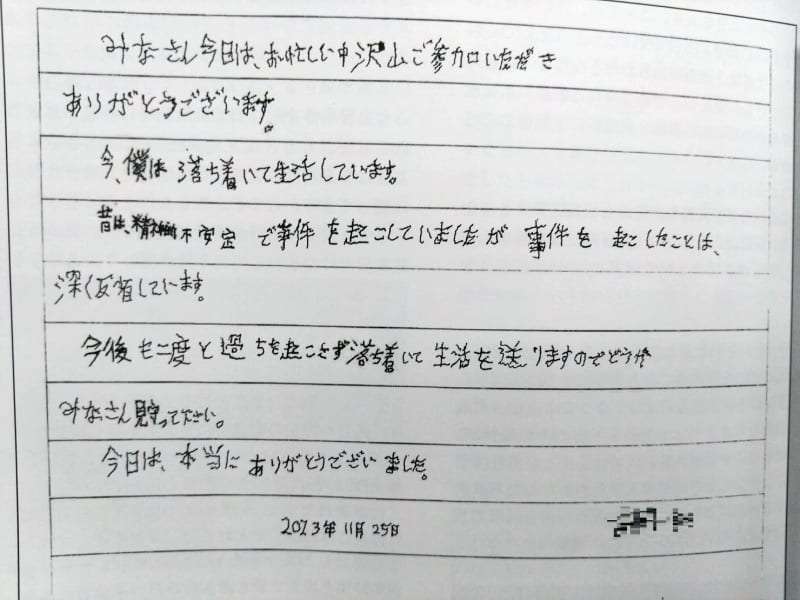 みなさん今日は、お忙しい中沢山ご参加いただき
ありがとうございます。
今、僕は落ち着いて生活しています。
昔は、精神的不安定で事件を起こしていましたが事件を起こしたことは、
深く反省しています。
今後も二度と過ちを起こさず落ち着いて生活を送りますのでどうか
みなさん見守ってください。
今日は、本当にありがとうございました。
2023年11月25日